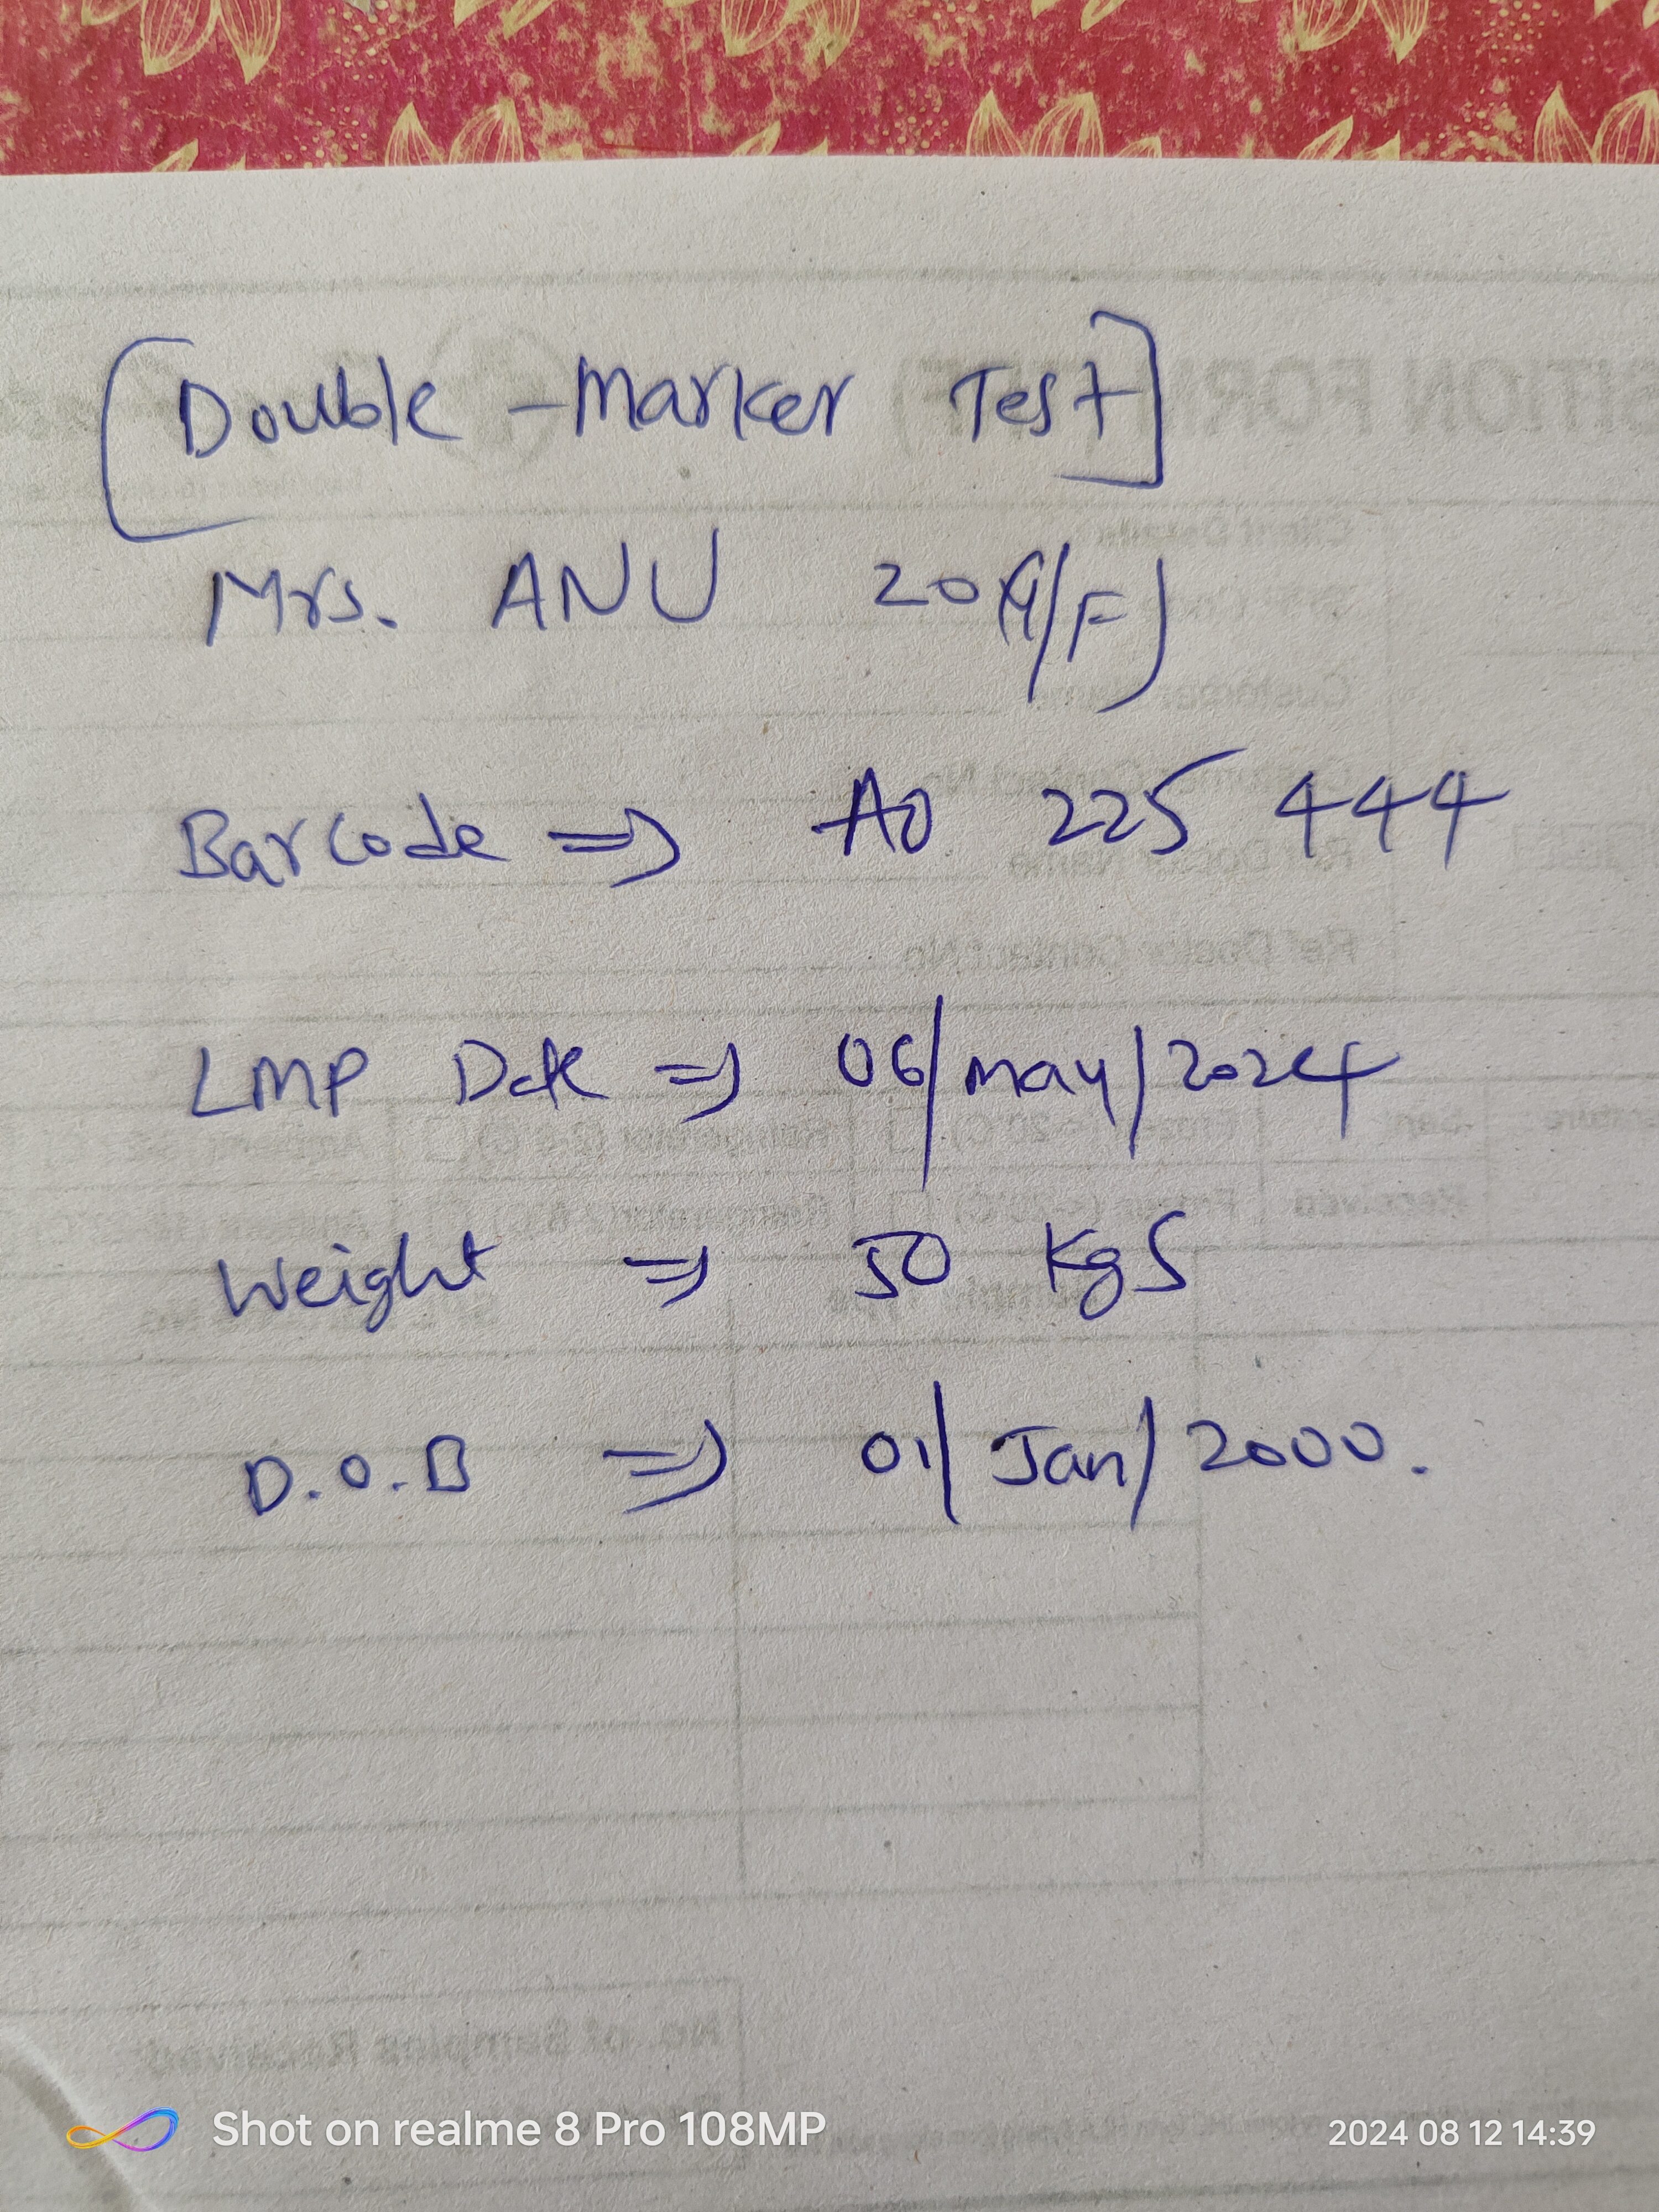 [Double -Marker Test]
Mrs. ANU 20(Y/F)
Barcode => A0 225 444
LMP Date => 06/may/2024
Weight => 50 KgS
D.O.B => 01/Jan/2000.
Shot on realme 8 Pro 108MP
2024 08 12 14:39